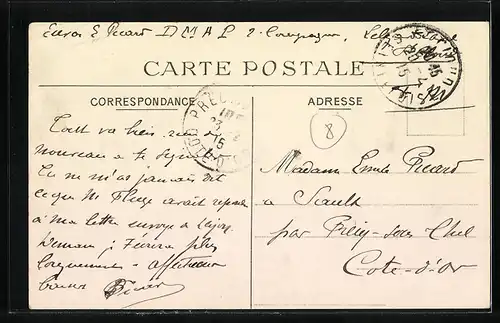 E Picard D M A L 2e Compagnie,
CARTE POSTALE
CORRESPONDANCE
ADRESSE
8
Tout va bien rien de
nouveau a te signaler
Tu ne m'as jamais dit
ce que M
avait
à ma lettre
Demain j'écrirai plus
longuement affectueux
baisers Picard
Madame Emile Picard
a Saulx
par Précy-sous-Thil
Cote-d'Or